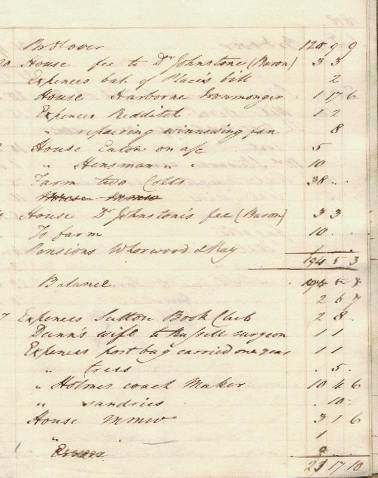 Brot over 120 9 9
House fee to Dr Johnstone (Baron) 3 3
Expences bal. of Place's bill 2
House Harborne Ironmonger 1 17 6
Expences Redditch 1 2
" repairing winnowing fan 8
House Eaton on a/c 5
" Hensman " " 10
Farm two Colts 38 - -
House Dr Johnstone's fee (Baron) 3 3
To farm 10 - -
Pensions Whorwood & Kay 1
194 5 3
Balance
2 6 7
7 Expences Sutton Book Club 2 8 -
Dunn's wife to Russell surgeon 1 1
Expences post bag carried one year 1 1
" trees . 5 .
" Holmes coach Maker 10 4 6
" sundries . 10 .
House mmw 3 1 6
" 1